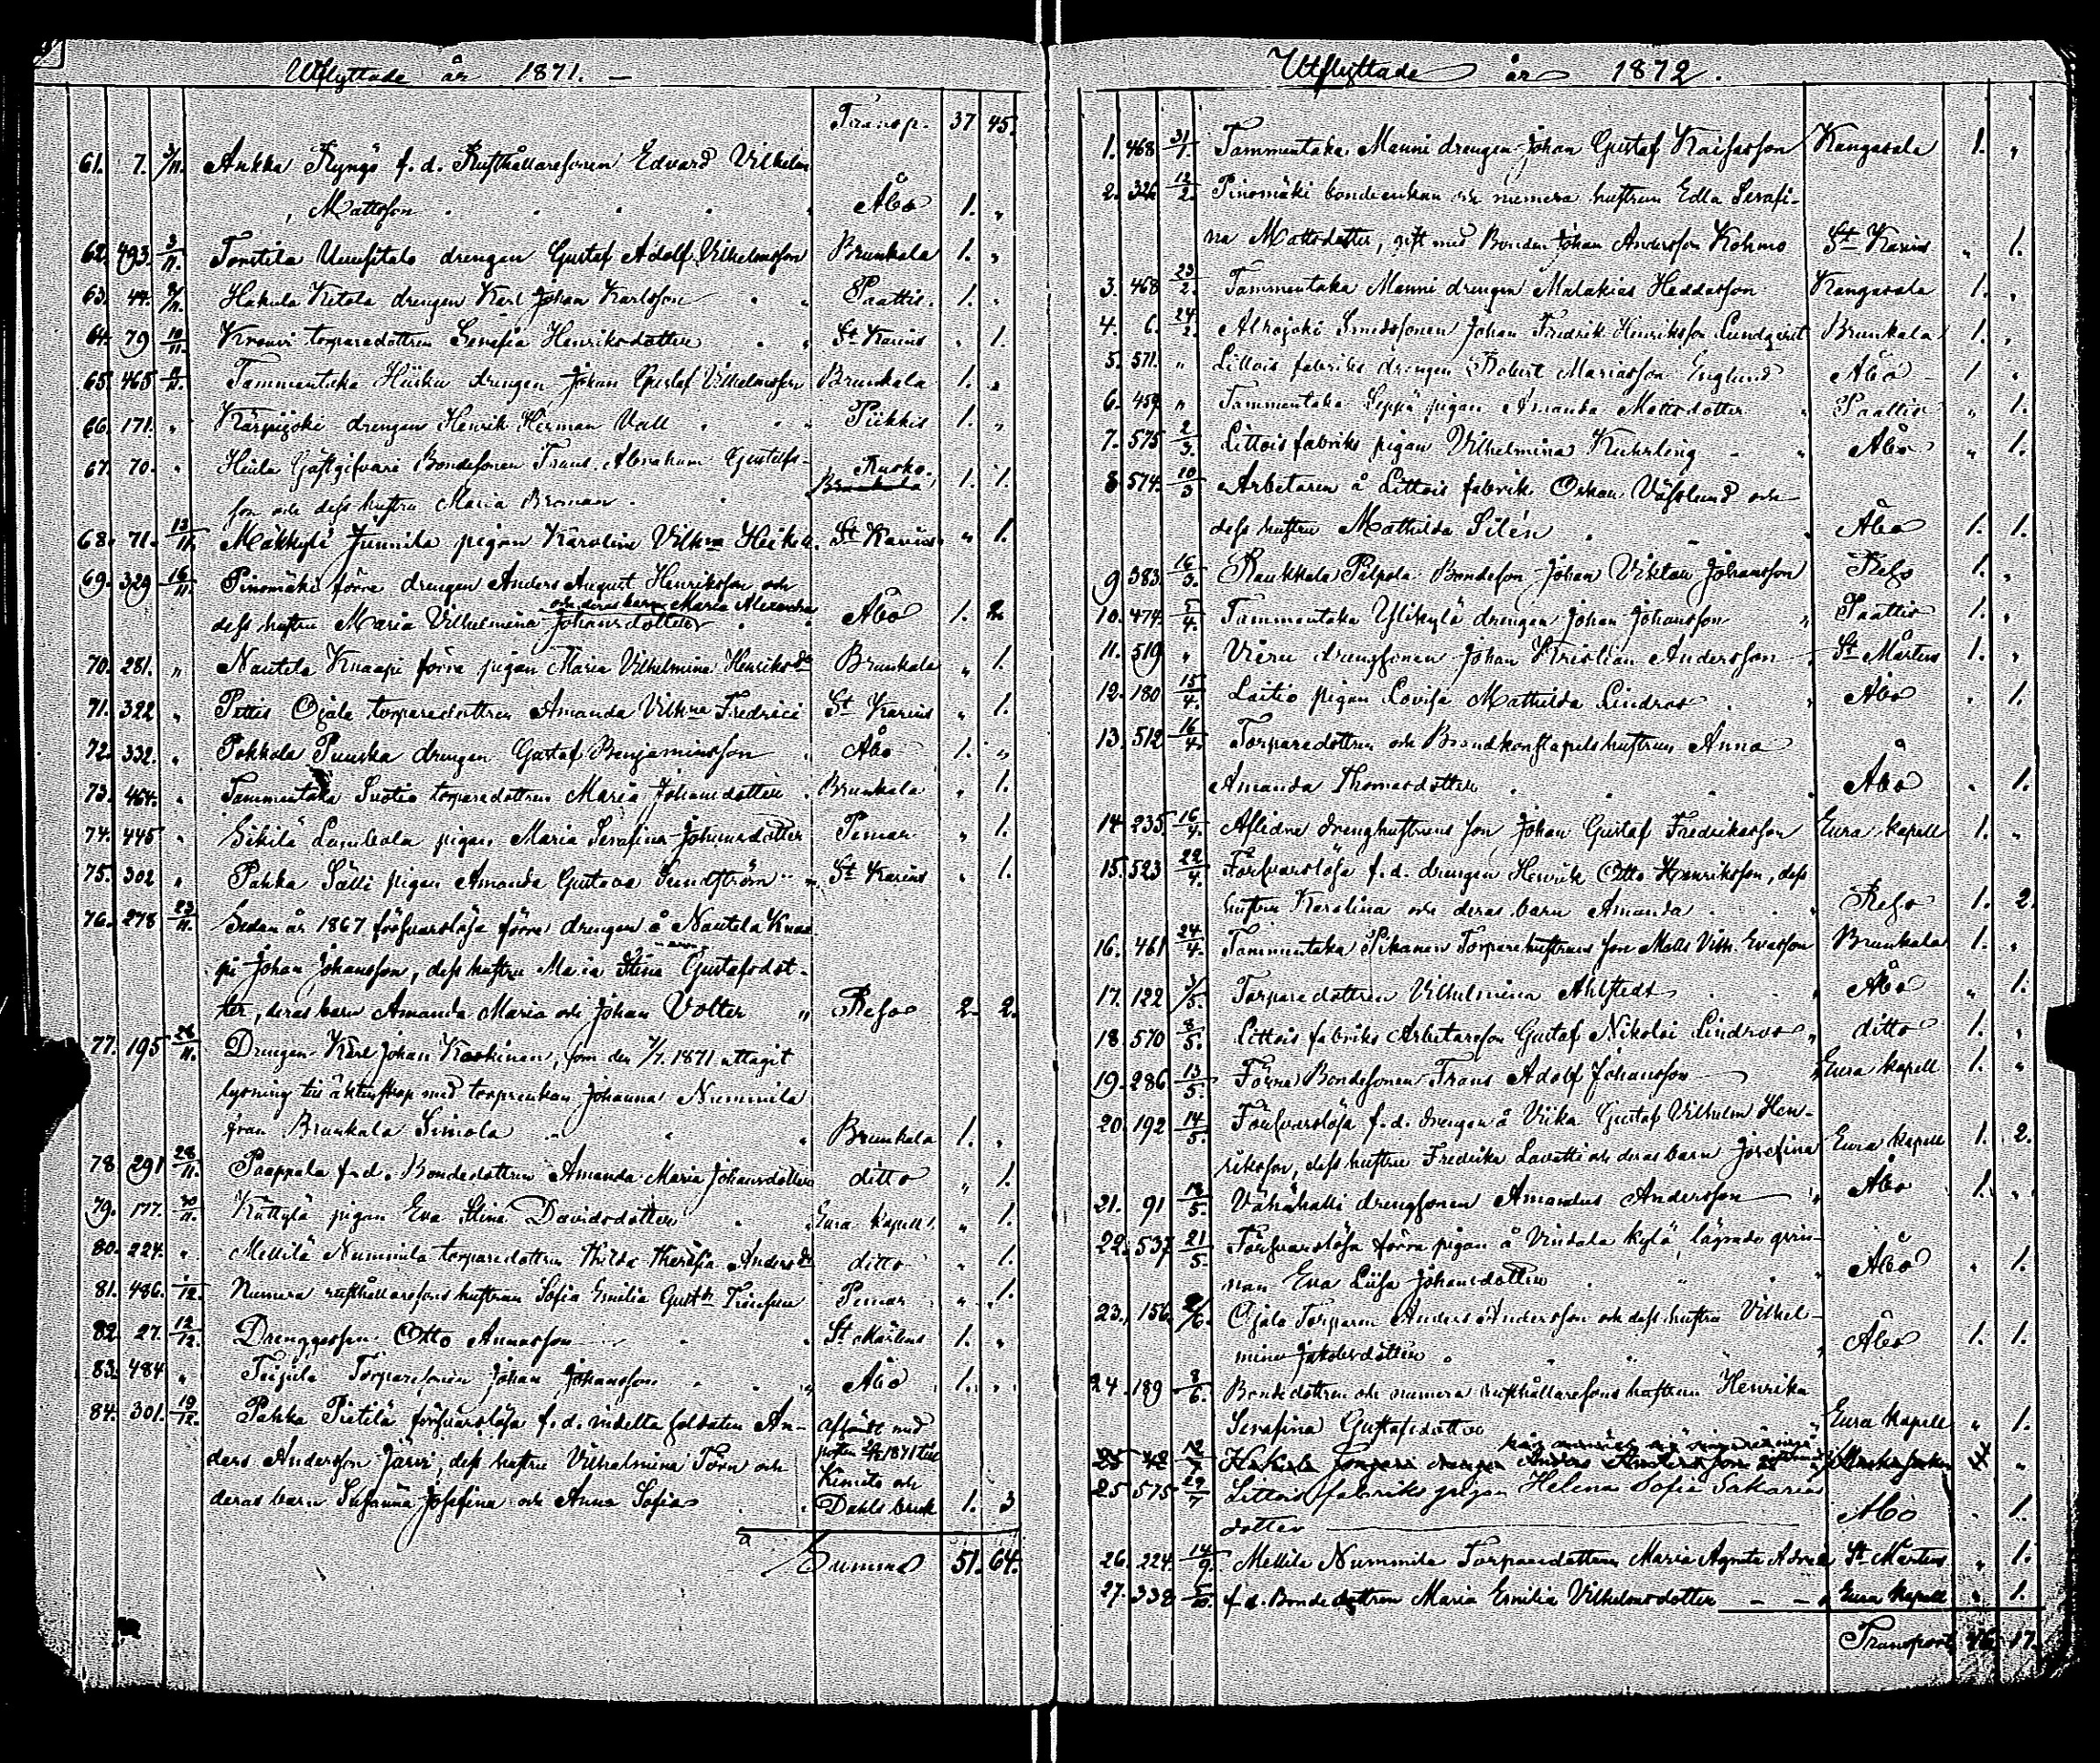 Utflyttade år 1871. —
Transp. 37 45.
61. 7. 3/11. Ankka Kyngs f. d. Rusthållaresonen Edvard Vilhelm
Mattsson . . . . Åbo 1. „
62. 493. 3/11. Tontila Uusitalo drengen Gustaf Adolf Vilhelmsson Brunkala 1. „
63. 44. Hakula Kitola drengen Karl Johan Karlsson . . Paattis. 1. „
64. 79 10/11. torparedottren Serafia Henriksdotter . . St Karins „ 1.
65. 465 Tammentaka Hiisku drengen Johan Gustaf Vilhelmsson Brunkala 1. „
66. 171. „ Kärpijoki drengen Henrik Herman Vall . . „ Piikkis 1. „
67. 70. „ Gästgifvari Bondesonen Frans Abraham Gustafs- Rusko.
son och dess hustru Maria Broman . . Brunkala 1. 1.
68. 71. 13/11. Mäkkylä Junnila pigan Karolina Vilhma Heikel. St Karins „ 1.
69. 329 16/11. Pinomäki förre drengen Anders August Henriksson och
och deras barn Maria Alexandra
dess hustru Maria Vilhelmina Johansdotter . Åbo 1. 2.
70. 281. „ Nautela Knaapi förra pigan Maria Vilhelmina Henriksdr Brunkala „ 1.
71. 322 „ Pettis Ojala torparedottren Amanda Vilhna Fredrici St Karins „ 1.
72. 332. „ Pokkola Puuska drengen Gustaf Benjaminsson „ Åbo 1. „
73. 464. „ Tammentaka Suotio torparedottren Maria Johansdotter . Brunkala „ 1.
74. 445 „ Sikilä Lumbola pigan Maria Serafina Johansdotter Pemar „ 1.
75. 302 „ Pahka Sälli pigan Amanda Gustava Sundström „ St Karins „ 1.
76. 278 23/11. Sedan år 1867 försvarslösa förre drengen å Nautela Knaa-
pi Johan Johansson, dess hustru Maria Stina Gustafsdot-
ter, deras barn Amanda Maria och Johan Volter „ Reso 2. 2.
77. 195 28/11. Drengen Karl Johan Koskinen, som den 7/7. 1871 uttagit
lysning till äktenskap med torpenkan Johanna Nummila
från Brunkala Simola „ „ „ Brunkala 1. „
78 291 28/11. Paappala f. d. Bondedottren Amanda Maria Johansdotter ditto „ 1.
79. 177. 30/11. Kuttylä pigan Eva Stina Davidsdotter . „ Eura Kapell. „ 1.
80. 224. „ Mellilä Nummila torparedottren Hilda Theresia Andersdr ditto „ 1.
81. 486. 1/12. Numera rusthållaresons hustrun Sofia Emilia Gustdr Pemar „ 1.
82. 27. 12/12. Drenggossen Otto Annasson . . St Mårtens 1. „
83. 484 „ Teijula Torparesonen Johan Johansson . . „ Åbo 1. „
84. 301. 19/12. Pahka Pietilä försvarslösa f. d. indelta soldaten An- afsändt med
ders Andersson Järvi, dess hustru Vilhelmina Törn och posten 1871 till
Kimito och
deras barn Susanna Josefina och Anna Sofia . „ Dahls bruk 1. 3
Summa 51. 64.
Utflyttade år 1872.
1. 468 31/1. Tammentaka Manni drengen Johan Gustaf Kaisasson Kangasala 1. „
2. 326 12/2. Pinomäki bondeenkan och numera hustrun Edla Serafi-
na Mattsdotter, gift med Bonden Johan Andersson Kohmo St Karins „ 1.
3. 468 23/2. Tammentaka Manni drengen Malakias Heddasson Kangasala 1. „
4. 6. 24/2. Alhojoki Smedssonen Johan Fredrik Henriksson Lundqvist Brunkala 1. „
5. 571. „ Littois fabriks drengen Robert Mariasson Englund Åbo 1. „
6. 459 „ Tammentaka Seppä pigan Amanda Mattsdotter „ Paattis „ 1.
7. 575 2/3. Littois fabriks pigan Vilhelmina Kuhrling „ Åbo „ 1.
8 574. 10/3 Arbetaren å Littois fabrik Oskar Vässlund och
dess hustru Mathilda Silén . „ Åbo 1. 1.
9 383. 16/3. Raukkala Pälpola Bondeson Johan Viktor Johansson Reso 1. „
10. 474. 5/4. Tammentaka Ylikylä drengen Johan Johansson „ Paattis 1. „
11. 519 „ Vieru drengsonen Johan Kristian Andersson „ St Mårtens 1. „
12. 180 15/4. Laitio pigan Lovisa Mathilda Lindros . „ Åbo „ 1.
13. 512 16/4. Torparedottren och Brandkonstapelshustrun Anna
Amanda Thomasdotter . . . . Åbo „ 1.
14. 235. 16/4. Aflidne drenghustruns son Johan Gustaf Fredrikasson Eura kapell 1. „
15. 523 22/4. Försvarslösa f. d. drengen Henrik Otto Henriksson, dess
hustru Karolina och deras barn Amanda . . „ Reso 1. 2.
16. 461 24/4. Tammentaka Pikanen Torparehustruns son Matts Vilh. Evasson Brunkala 1. „
17. 122 3/5. Torparedottren Vilhelmina Ahlstedt . . „ Åbo „ 1.
18. 570 8/5. Littois fabriks Arbetareson Gustaf Nikolai Lindroos „ ditto 1. „
19. 286 13/5. Förre Bondesonen Frans Adolf Johansson „ Eura Kapell 1. „
20. 192 14/5. Försvarslösa f. d. drengen å Viika Gustaf Vilhelm Hen-
riksson, dess hustru Fredrika Lovatti och deras barn Josefina Eura kapell 1. 2.
21. 91 18/5. Vähähalli drengsonen Amandus Andersson „ Åbo 1. „
22. 537 21/5. Försvarslösa förra pigan å Vindala kylä, lägrade qvin-
nan Eva Liisa Johansdotter . „ „ Åbo „ 1.
23. 156. Ojala Torparen Anders Andersson och dess hustru Vilhel-
mina Jakobsdotter . „ „ „ Åbo 1. 1.
24. 189 8/6. Bondedottren och numera rusthållaresons hustrun Henrika
Serafina Gustafsdotter Eura Kapell „ 1.
25 42 12/7 Hakula drengen Anders Andersson
25 575 29/7 Littois fabriks pigan Helena Sofia Sakarias
dotter Åbo . 1.
26. 224. 14/9. Mellila Nummila Torparedottren Maria Agneta St Mårtens „ 1.
27. 338 5/10. f. d. Bondedottren Maria Emilia Vilhelmsdotter — — „ Eura kapell „ 1.
Transport 16. 17.